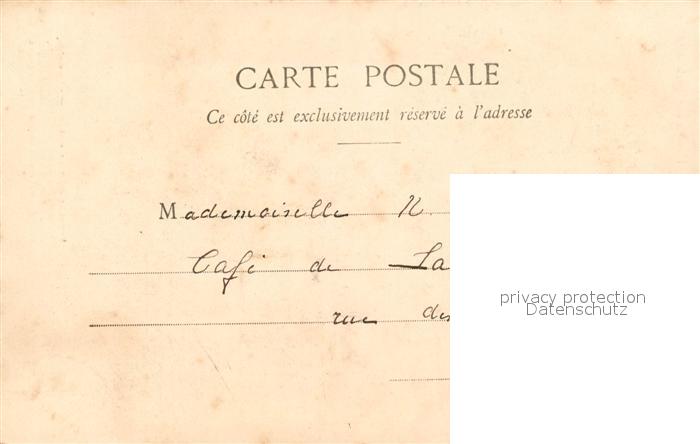 CARTE POSTALE
Ce côté est exclusivement réservé à l'adresse
Mademoiselle N.
Café de La
rue des
privacy protection
Datenschutz